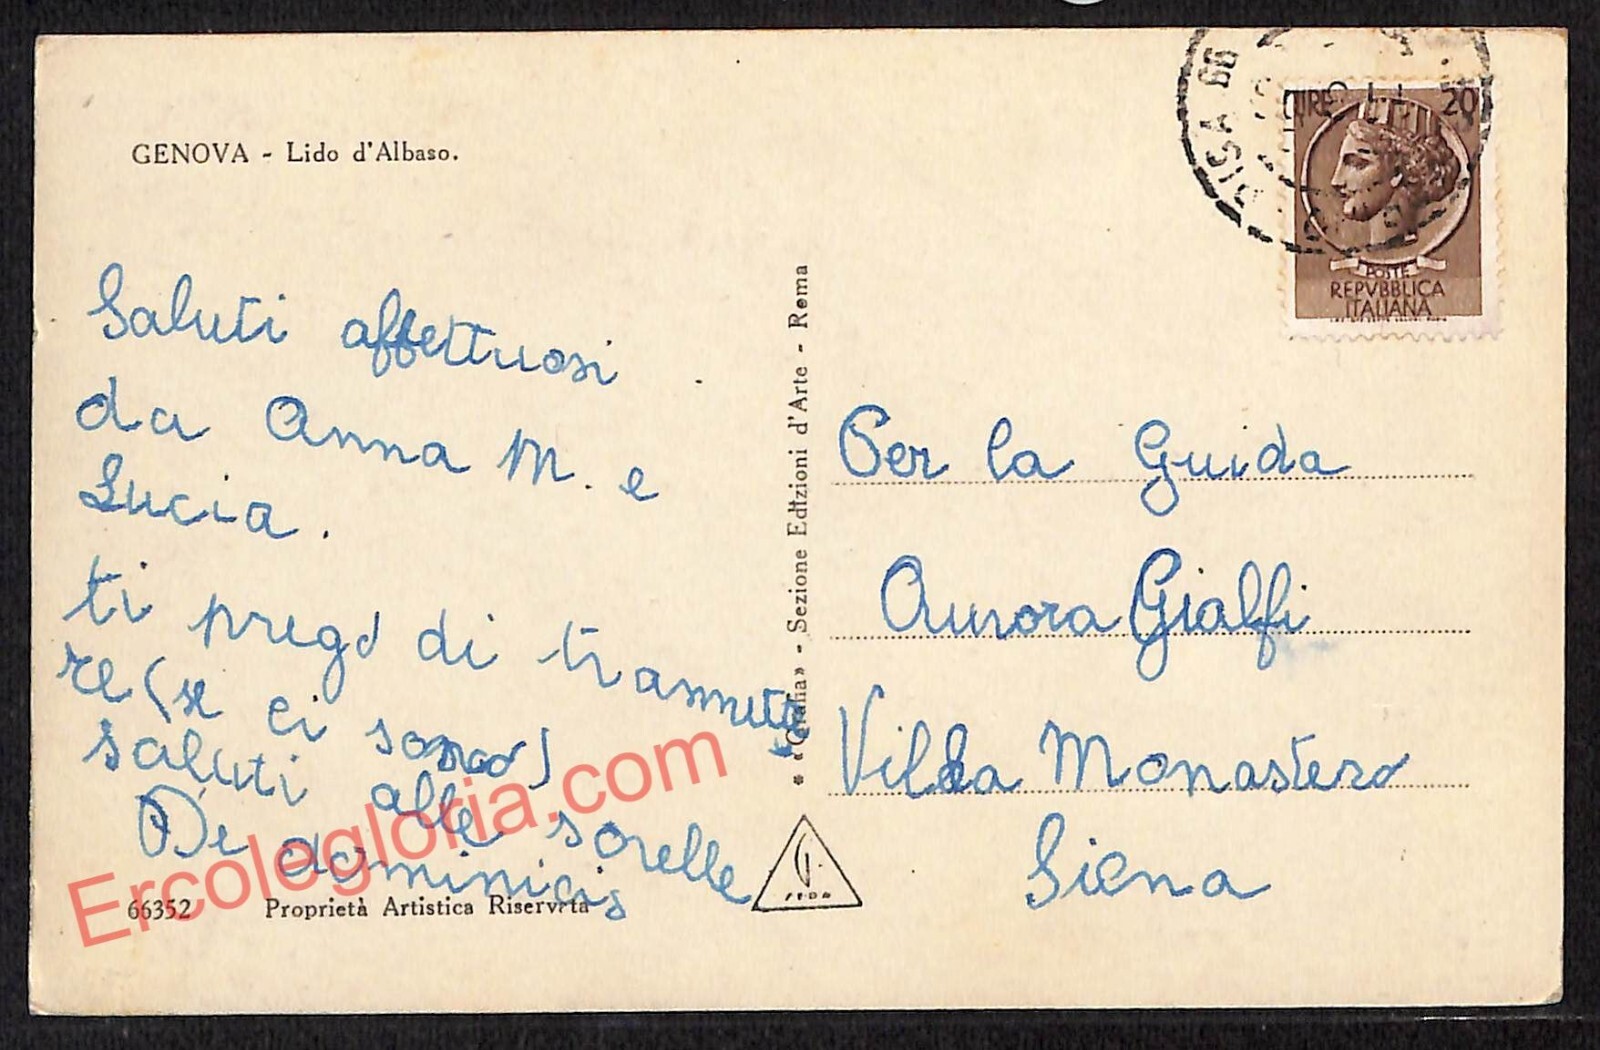 GENOVA - Lido d'Albaso.
Saluti affettuosi
da Anna M. e
Lucia.
ti prego di trammette
re (se ci sono)
saluti alle sorelle
De dominicis
66352 Proprietà Artistica Riservata
• «Gralia» - Sezione Edizioni d'Arte - Roma
PISA
LIRE 20
POSTE
REPVBBLICA
ITALIANA
Per la Guida
Aurora Gialfi
Villa Monastero
Siena
Ercolegloria.com